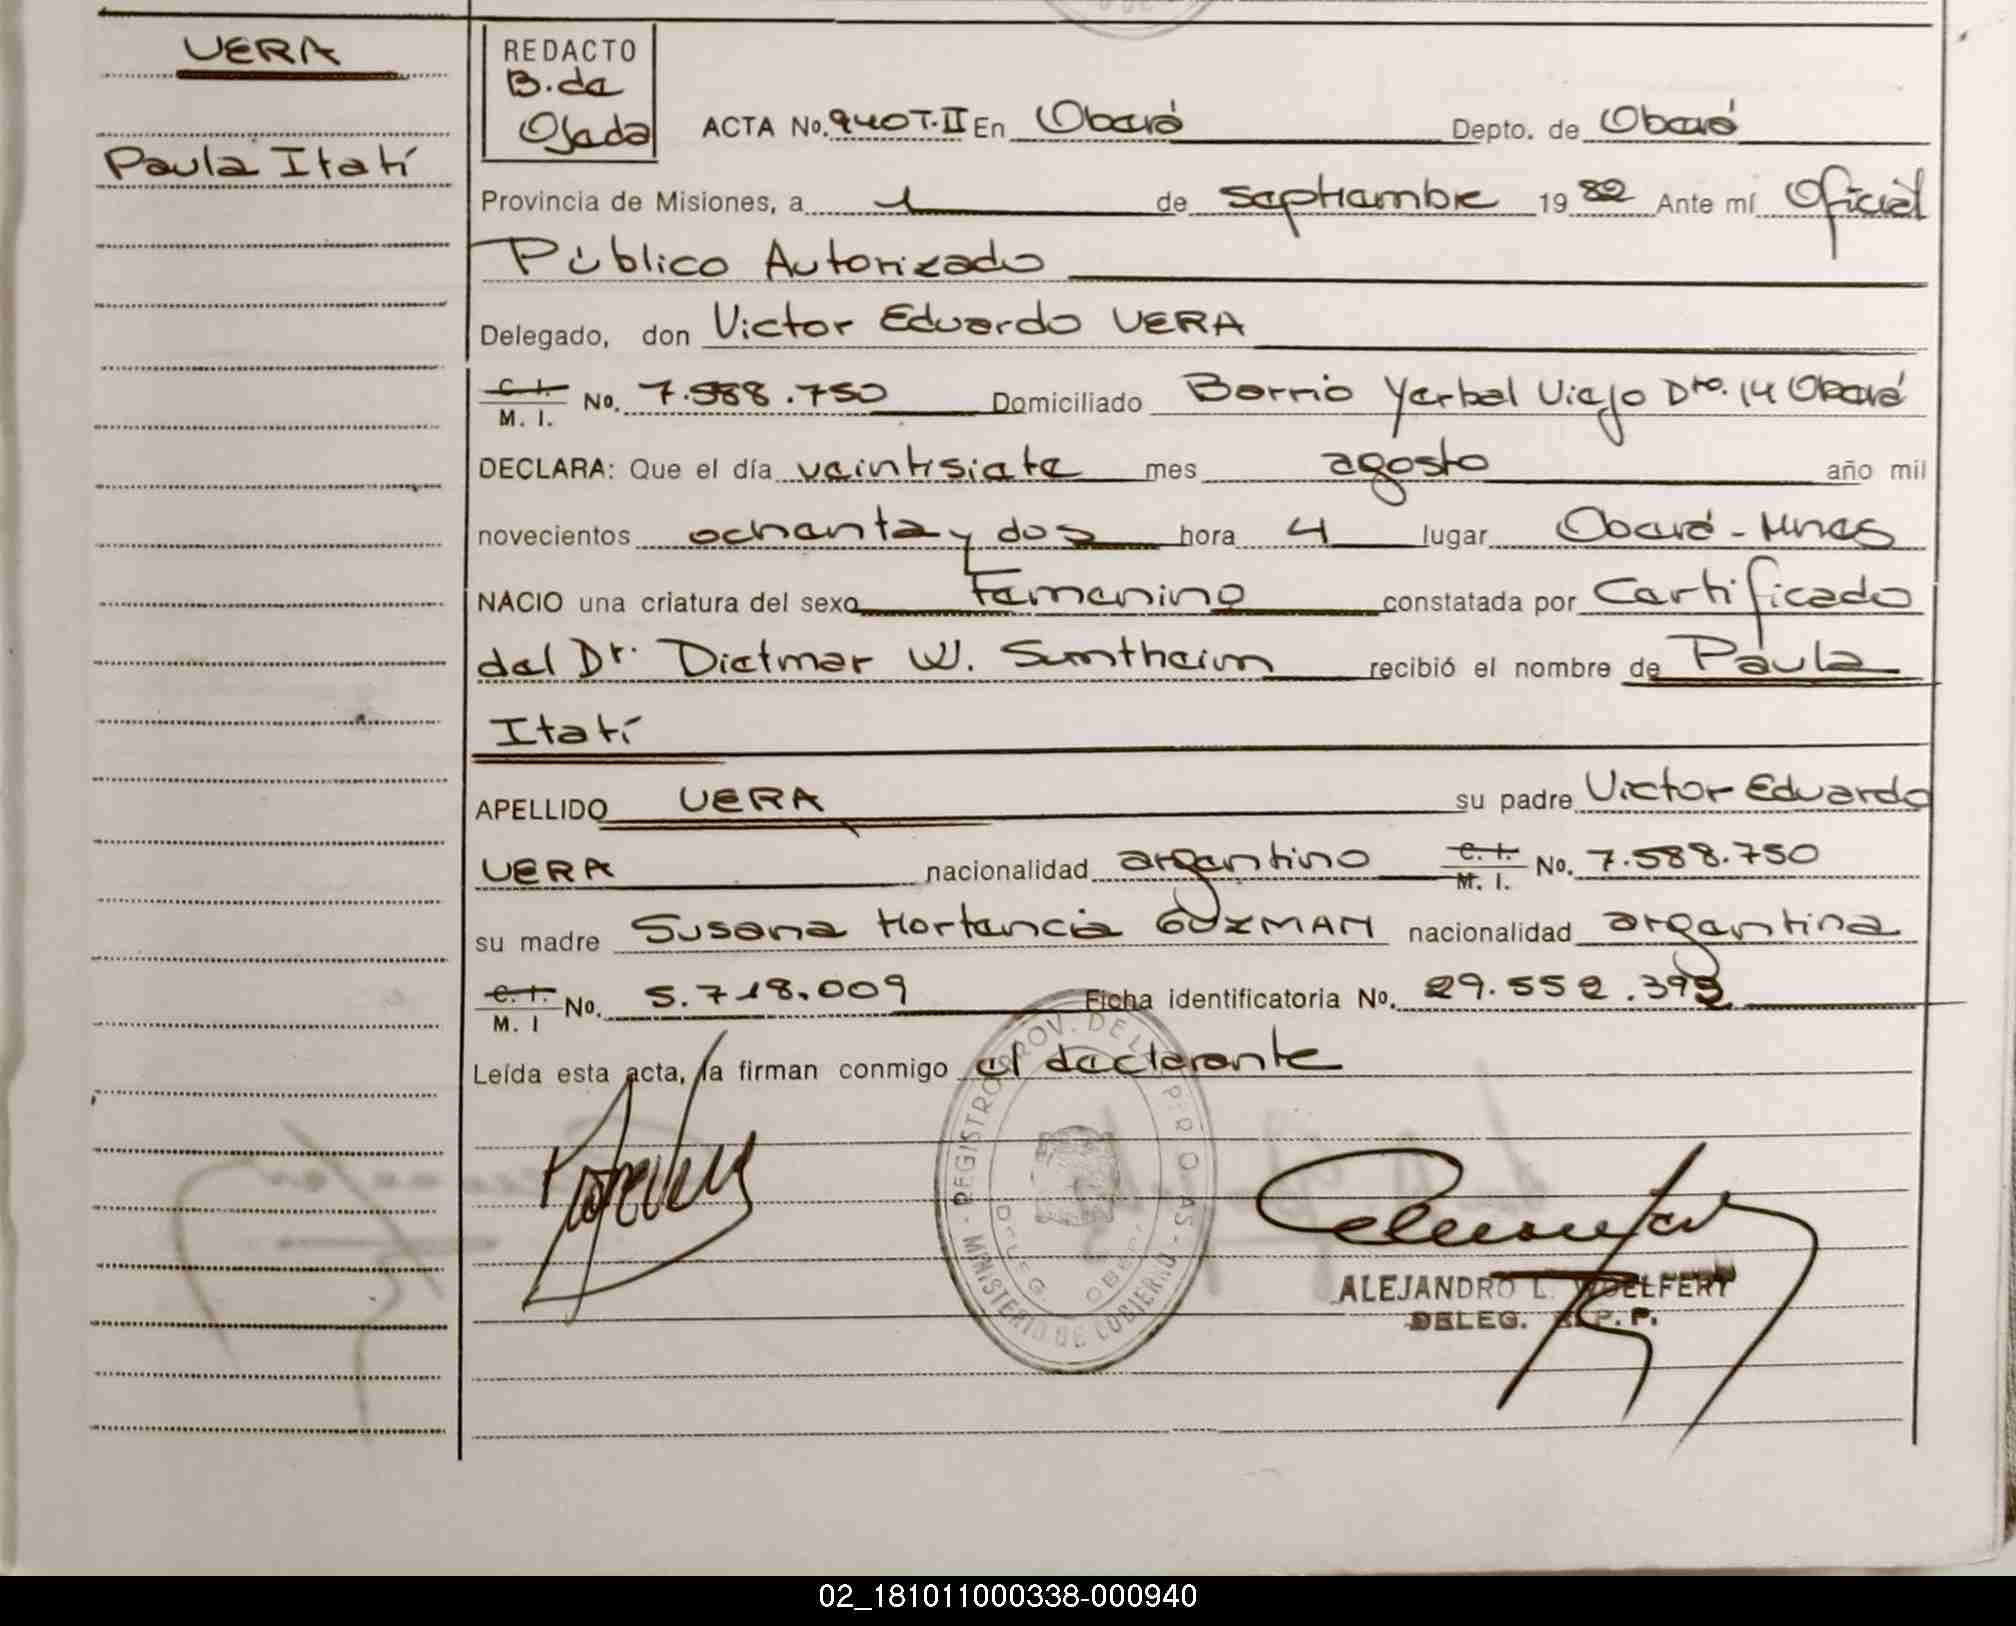 VERA
Paula Itatí
REDACTO
B. de
Ojeda
ACTA No. 940 T-II En Oberá Depto. de Oberá
Provincia de Misiones, a 1 de septiembre 19 82 Ante mí Oficial
Público Autorizado
Delegado, don Victor Eduardo VERA
C. I. M. I. No. 7.588.750 Domiciliado Barrio Yerbal Viejo Dto. 14 Oberá
DECLARA: Que el día veintisiete mes agosto año mil
novecientos ochenta y dos hora 4 lugar Oberá - Mnes
NACIO una criatura del sexo Femenino constatada por Certificado
del Dr. Dietmar W. Sumtheim recibió el nombre de Paula
Itatí
APELLIDO VERA su padre Victor Eduardo
VERA nacionalidad argentino C. I. M. I. No. 7.588.750
su madre Susana Hortencia GUZMAN nacionalidad argentina
C. I. M. I No. 5.718.009 Ficha identificatoria No. 29.552.393
Leída esta acta, la firman conmigo el declarante
REGISTRO PROV. DE LAS PERSONAS - MINISTERIO DE GOBIERNO
DELEG. OBERA
ALEJANDRO L. WOELFERT
DELEG. R. P. P.
02_181011000338-000940